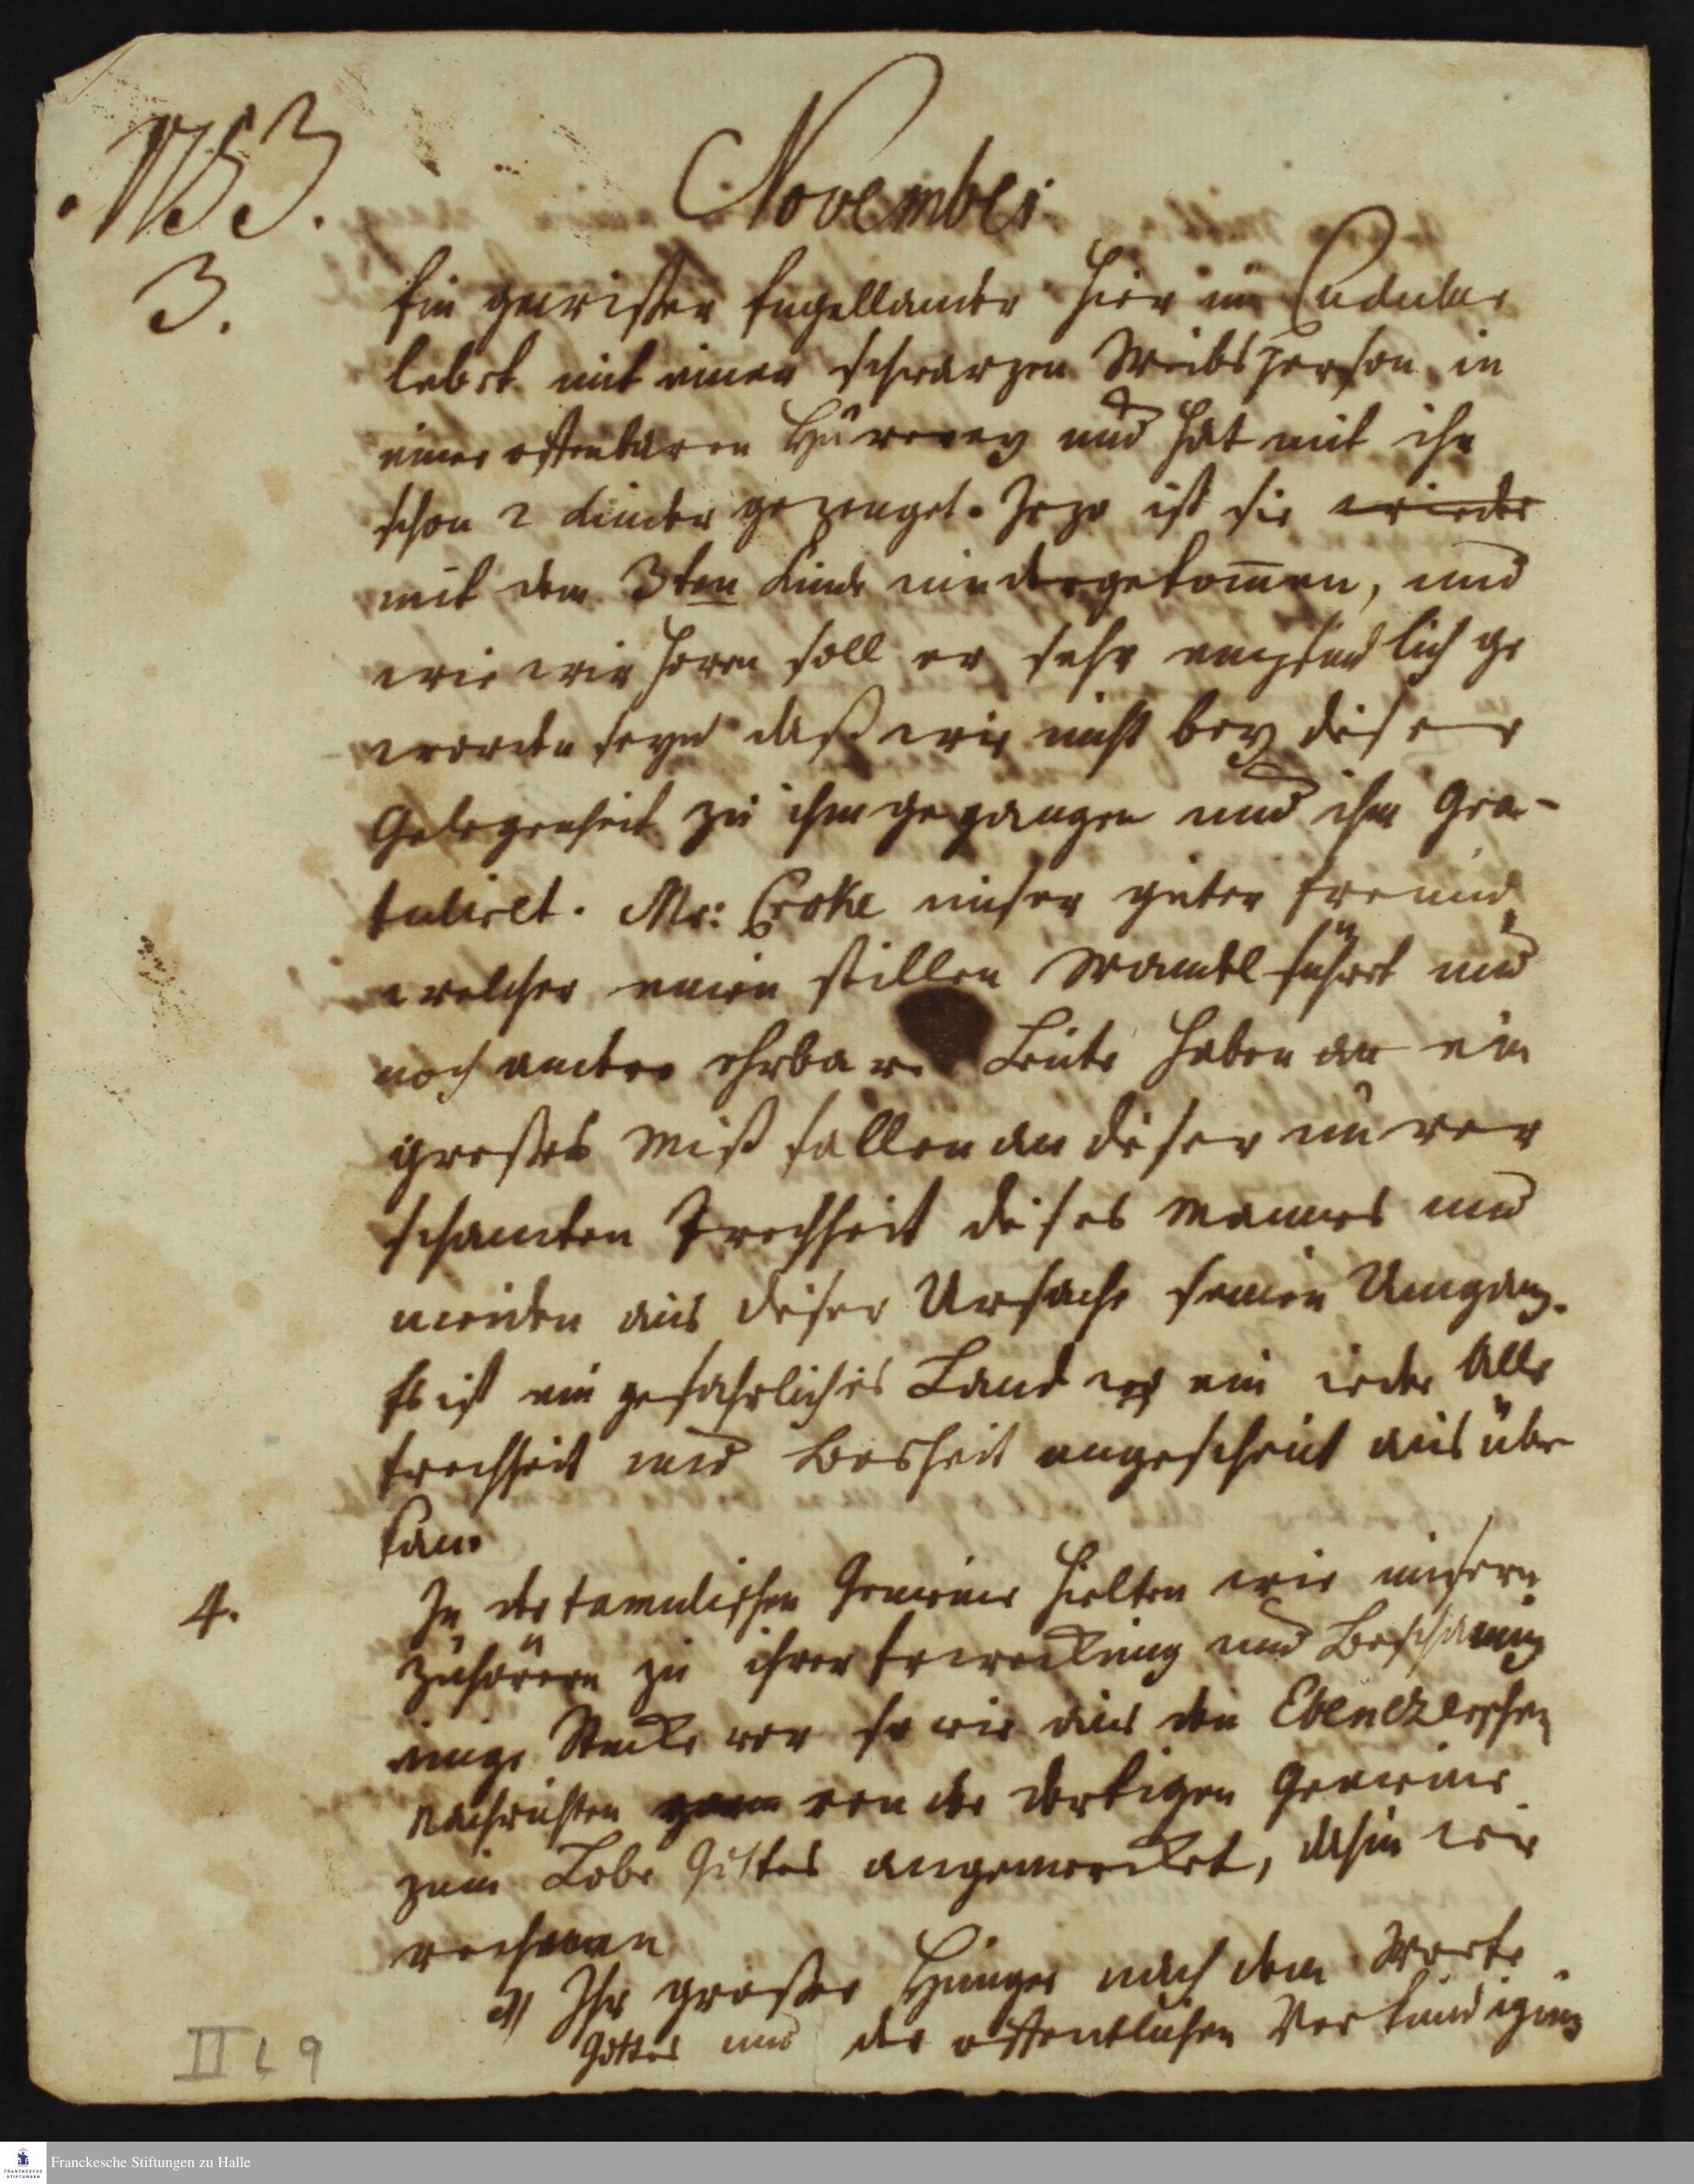 1753.
November
3.
Ein gewisser Engelländer hier in Cudulur
lebet mit einer schwarzen Weibsperson in
einer offenbaren Hurerey und hat mit ihr
schon 2 Kinder gezeuget. Jezo ist sie wieder
mit dem 3ten Kinde niedergekom̄en, und
wie wir horen soll er sehr empfindlich ge
worden seyn daß wir nicht bey diser
Gelegenheit zu ihm gegangen und ihm Gra-
tuliret. Mr: Croke unser guter freund
welcher einen stillen Wandel führet und
noch andere ehrbare Leute haben ein
großes Mißfallen an diser unver
schamten Frechheit dises Mannes und
meiden aus diser Ursache seinen Umgang.
Es ist ein gefahrliches Land wo ein ieder Alle
frechheit und Bosheit ungescheut ausüben
kan.
4.
In der tamulischen Gemeine hielten wir unsern
Zuhörern zu ihrer Erweckung und Beschämung
einige Stucke vor so wir aus den Ebenezerschen
Nachrichten von der dortigen Gemeine
zum Lobe Gottes angemercket, dahin wir
rechnen
Ihr großer Hunger nach dem Worte
Gottes und der offentlichen Verkundigung
II L 9
Franckesche Stiftungen zu Halle
FRANCKESCHE
STIFTUNGEN